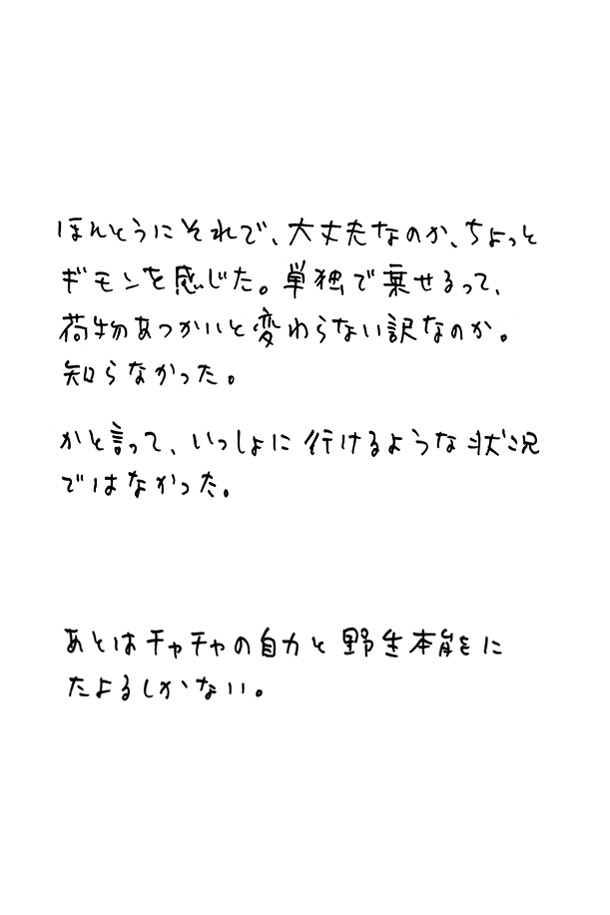 ほんとうにそれで、大丈夫なのか、ちょっと
ギモンを感じた。単独で乗せるって、
荷物あつかいと変わらない訳なのか。
知らなかった。
かと言って、いっしょに行けるような状況
ではなかった。
あとはチャチャの自力と野生本能に
たよるしかない。